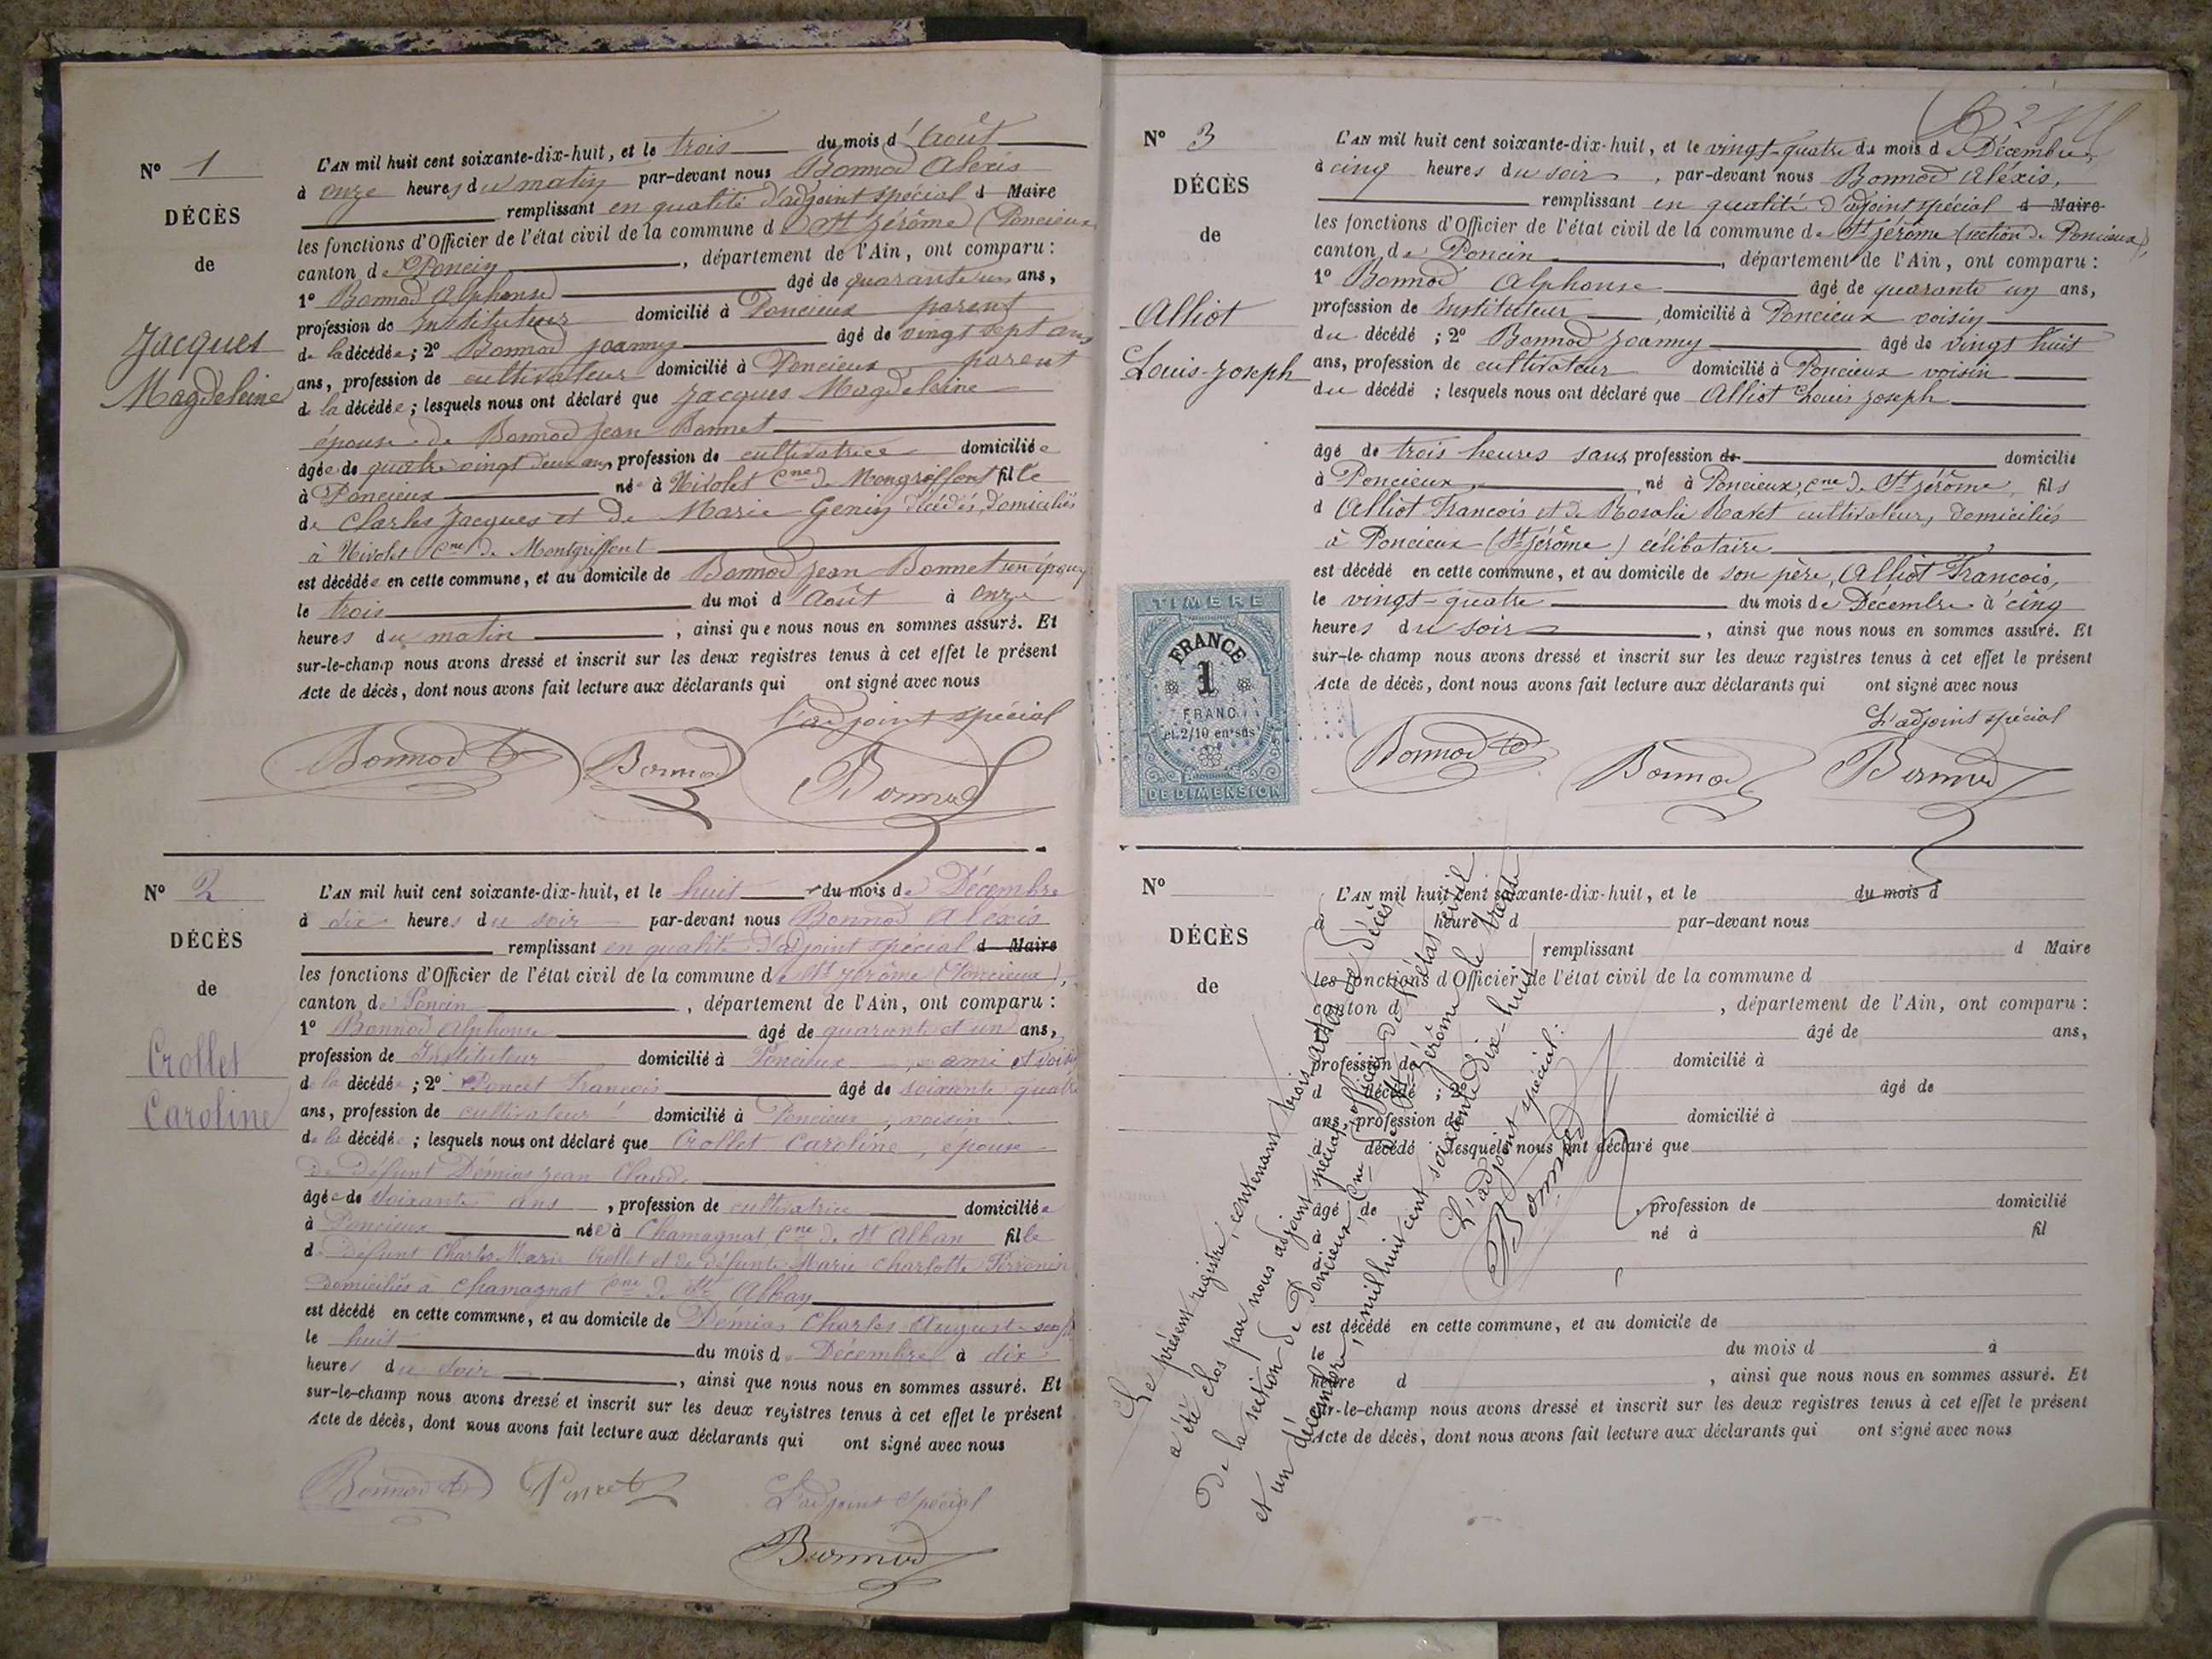 N° 1
DÉCÈS
de
Jacques
Magdeleine
L'AN mil huit cent soixante-dix-huit, et le trois du mois d'Août
à onze heures du matin par-devant nous Bonnod Alexis
remplissant en qualité d'adjoint spécial d Maire
les fonctions d'Officier de l'état civil de la commune de St Jérôme (Poncieux
canton de Poncin, département de l'Ain, ont comparu :
1° Bonnod Alphonse âgé de quarante un ans,
profession de Instituteur domicilié à Poncieux parent
de la décédée ; 2° Bonnod Joanny âgé de vingt sept ans
ans, profession de cultivateur domicilié à Poncieux parent
de la décédée ; lesquels nous ont déclaré que Jacques Magdeleine
épouse de Bonnod Jean Bonnet
âgée de quatre vingt deux ans, profession de cultivatrice domiciliée
à Poncieux née à Nivolet Cne de Mongriffont fille
de Charles Jacques et de Marie Genin décédés, domiciliés
à Nivolet Cne de Montgriffont
est décédée en cette commune, et au domicile de Bonnod Jean Bonnet son époux
le trois du moi d'Août à onze
heures du matin, ainsi que nous nous en sommes assuré. Et
sur-le-champ nous avons dressé et inscrit sur les deux registres tenus à cet effet le présent
Acte de décès, dont nous avons fait lecture aux déclarants qui ont signé avec nous
l'adjoint spécial
Bonnod Bonnod Bonnod
N° 2
DÉCÈS
de
Crollet
Caroline
L'AN mil huit cent soixante-dix-huit, et le huit du mois de Décembre
à dix heures du soir par-devant nous Bonnod Alexis
remplissant en qualité d'adjoint spécial d Maire
les fonctions d'Officier de l'état civil de la commune de St Jérôme (Poncieux),
canton de Poncin, département de l'Ain, ont comparu :
1° Bonnod Alphonse âgé de quarante et un ans,
profession de Instituteur domicilié à Poncieux, ami et voisin
de la décédée ; 2° Poncet François âgé de soixante quatre
ans, profession de cultivateur domicilié à Poncieux, voisin
de la décédée ; lesquels nous ont déclaré que Crollet Caroline, épouse
de défunt Démias Jean Claude
âgée de soixante ans, profession de cultivatrice domiciliée
à Poncieux née à Chamagnat, Cne de St Alban fille
de défunt Charles Marie Crollet et de défunte Marie Charlotte Perronin
domiciliés à Chamagnat Cne de St Alban
est décédé en cette commune, et au domicile de Démias Charles Auguste
le huit du mois de Décembre à dix
heures du soir, ainsi que nous nous en sommes assuré. Et
sur-le-champ nous avons dressé et inscrit sur les deux registres tenus à cet effet le présent
Acte de décès, dont nous avons fait lecture aux déclarants qui ont signé avec nous
Bonnod Poncet L'adjoint spécial
Bonnod
N° 3
DÉCÈS
de
Alliot
Louis-Joseph
L'AN mil huit cent soixante-dix-huit, et le vingt-quatre du mois de Décembre,
à cinq heures du soir, par-devant nous Bonnod Alexis,
remplissant en qualité d'adjoint spécial d Maire
les fonctions d'Officier de l'état civil de la commune de St Jérôme (section de Poncieux),
canton de Poncin, département de l'Ain, ont comparu :
1° Bonnod Alphonse âgé de quarante un ans,
profession de Instituteur, domicilié à Poncieux voisin
du décédé ; 2° Bonnod Joanny âgé de vingt huit
ans, profession de cultivateur domicilié à Poncieux voisin
du décédé ; lesquels nous ont déclaré que Alliot Louis Joseph
âgé de trois heures sans profession de domicilié
à Poncieux, né à Poncieux, Cne de St Jérôme, fils
d'Alliot François et de Rosalie Ravet cultivateur, domiciliés
à Poncieux (St Jérôme) célibataire
est décédé en cette commune, et au domicile de son père, Alliot François,
le vingt-quatre du mois de Décembre à cinq
heures du soir, ainsi que nous nous en sommes assuré. Et
sur-le-champ nous avons dressé et inscrit sur les deux registres tenus à cet effet le présent
Acte de décès, dont nous avons fait lecture aux déclarants qui ont signé avec nous
L'adjoint spécial
Bonnod Bonnod Bonnod
TIMBRE
FRANCE
1
FRANC
et 2/10 en sus
DE DIMENSION
N°
DÉCÈS
de
L'AN mil huit cent soixante-dix-huit, et le du mois d
à heure d par-devant nous
remplissant d Maire
les fonctions d'Officier de l'état civil de la commune d
canton d , département de l'Ain, ont comparu :
1° âgé de ans,
profession de domicilié à
d décédé ; 2° âgé de
ans, profession de domicilié à
d décédé ; lesquels nous ont déclaré que
âgé de , profession de domicilié
à né à fil
d
est décédé en cette commune, et au domicile de
le du mois d à
heure d , ainsi que nous nous en sommes assuré. Et
sur-le-champ nous avons dressé et inscrit sur les deux registres tenus à cet effet le présent
Acte de décès, dont nous avons fait lecture aux déclarants qui ont signé avec nous
Le présent registre, contenant trois actes de décès,
a été clos par nous adjoint spécial, officier de l'état civil
de la section de Poncieux, Cne de St Jérôme le trente
et un décembre, mil huit cent soixante-dix-huit
L'adjoint spécial.
Bonnod